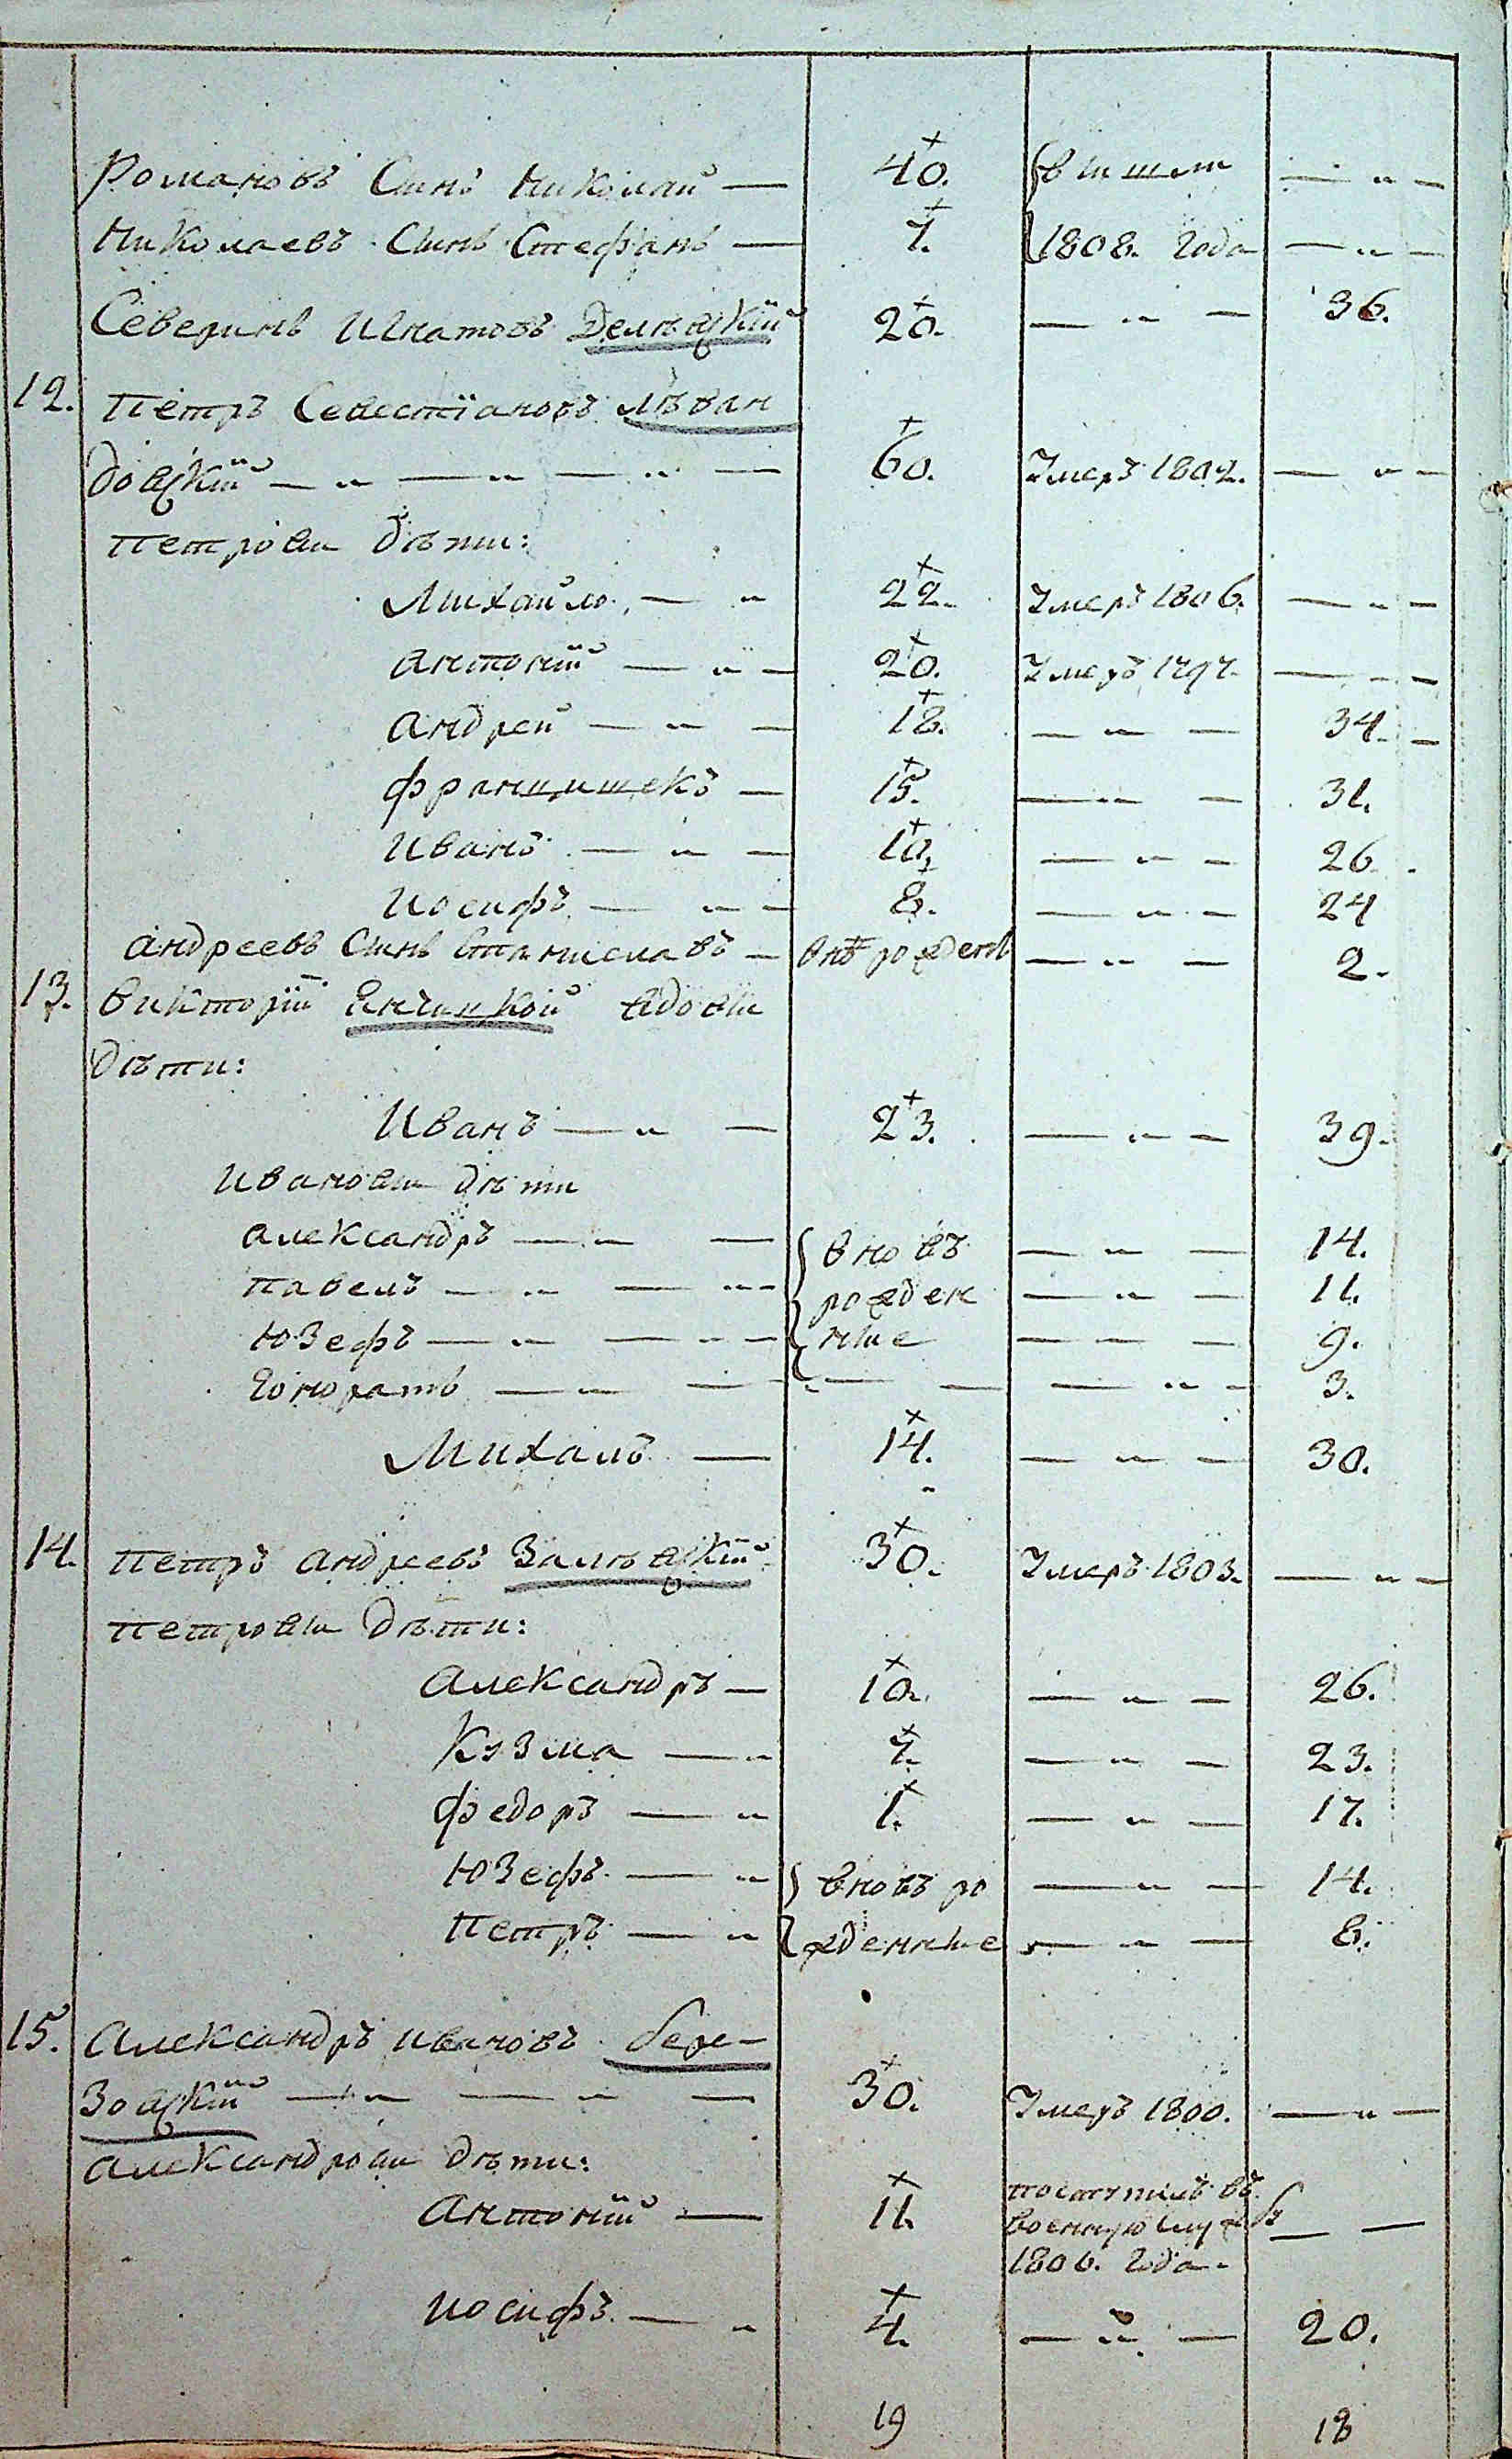 Романовъ Сынъ Николай — 40. вышли — „ —
Николаевъ Сынъ Стефанъ — 7. 1808. года — „ —
Северинъ Игнатовъ 20. — „ — 36.
12. Петръ Севестїановъ Леван
довскїй — „ — „ — „ — 60. Умеръ 1802. — „ —
Петровы Дѣти:
Михайло — „ 22. Умеръ 1806. — „ —
Антонїй — „ — 20. Умеръ 1797. — „ —
Андрей — „ — 18. — „ — 34. —
Францишекъ — 15. — „ — 31.
Иванъ — „ — 10. — „ — 26.
Иосифъ — „ — 8. — „ — 24
Андреевъ Сынъ Станиславъ — — „ — 2.
13. Викторїи вдовы
Дѣти:
Иванъ — „ — 23. — „ — 39.
Ивановы Дѣти
Александръ — „ — вновъ — „ — 14.
Павелъ — „ — „ — рожден — „ — 11.
Юзефъ — „ — „ — ные — „ — 9.
Гоноратъ — „ — „ — — — „ — 3.
Михалъ — 14. — „ — 30.
14. Петръ Андреевъ Залѣвскїй 30. Умеръ 1803. — „ —
Петровы Дѣти:
Александръ — 10. — „ — 26.
Кузма — „ 7. — „ — 23.
Федоръ — „ 1. — „ — 17.
Юзефъ — „ вновъ ро — „ — 14.
Петръ — „ жденные — „ — 8.
15. Александръ Ивановъ Бере-
зовскїй — „ — „ — 30. Умеръ 1800. — „ —
Александровы Дѣти:
Антонїй — 11. поступилъ въ
военную службу — —
1806. года.
Иосифъ — „ 4. — „ — 20.
19 18